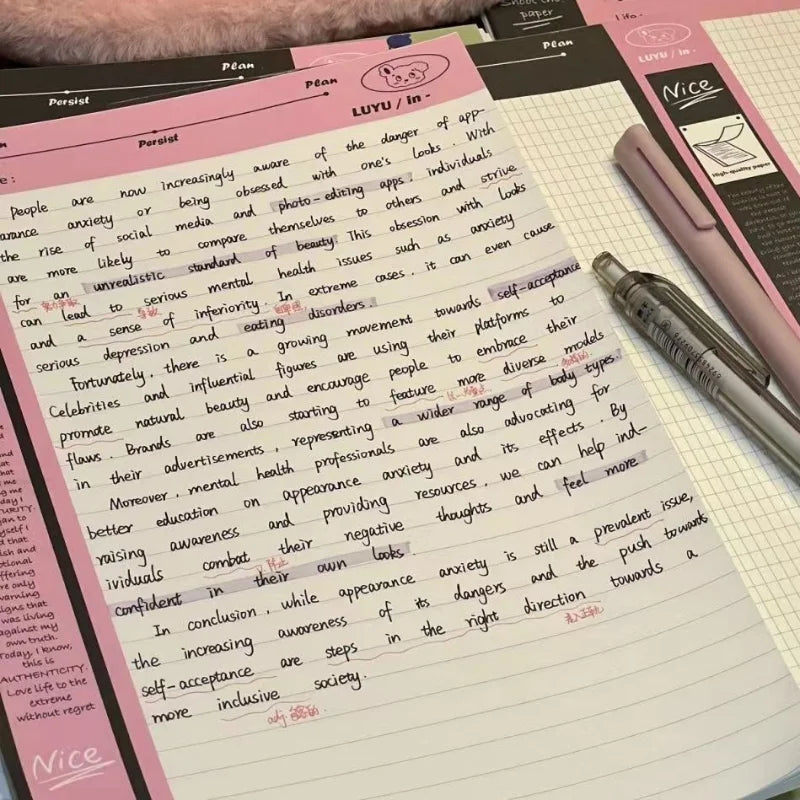 Shoot the
paper
Life.
Plan
Persist
Plan
Plan
Persist
LUYU / in -
LUYU / in -
Nice
High-quality paper
People are now increasingly aware of the danger of app-
arance anxiety or being obsessed with one's looks. With
the rise of social media and photo-editing apps, individuals
are more likely to compare themselves to others and strive
for an unrealistic standard of beauty. This obsession with looks
努力争取
can lead to serious mental health issues such as anxiety
导致
and a sense of inferiority. In extreme cases, it can even cause
自卑感
serious depression and eating disorders.
Fortunately, there is a growing movement towards self-acceptance
Celebrities and influential figures are using their platforms to
promote natural beauty and encourage people to embrace their
flaws. Brands are also starting to feature more diverse models
in their advertisements, representing a wider range of body types.
Moreover, mental health professionals are also advocating for
better education on appearance anxiety and its effects. By
raising awareness and providing resources, we can help ind-
ividuals combat their negative thoughts and feel more
confident in their own looks.
In conclusion, while appearance anxiety is still a prevalent issue,
the increasing awareness of its dangers and the push toward
self-acceptance are steps in the right direction towards a
走入正轨
more inclusive society.
adj.
truth.
Today, I know,
this is
AUTHENTICITY.
Love life to the
extreme
without regret
Nice